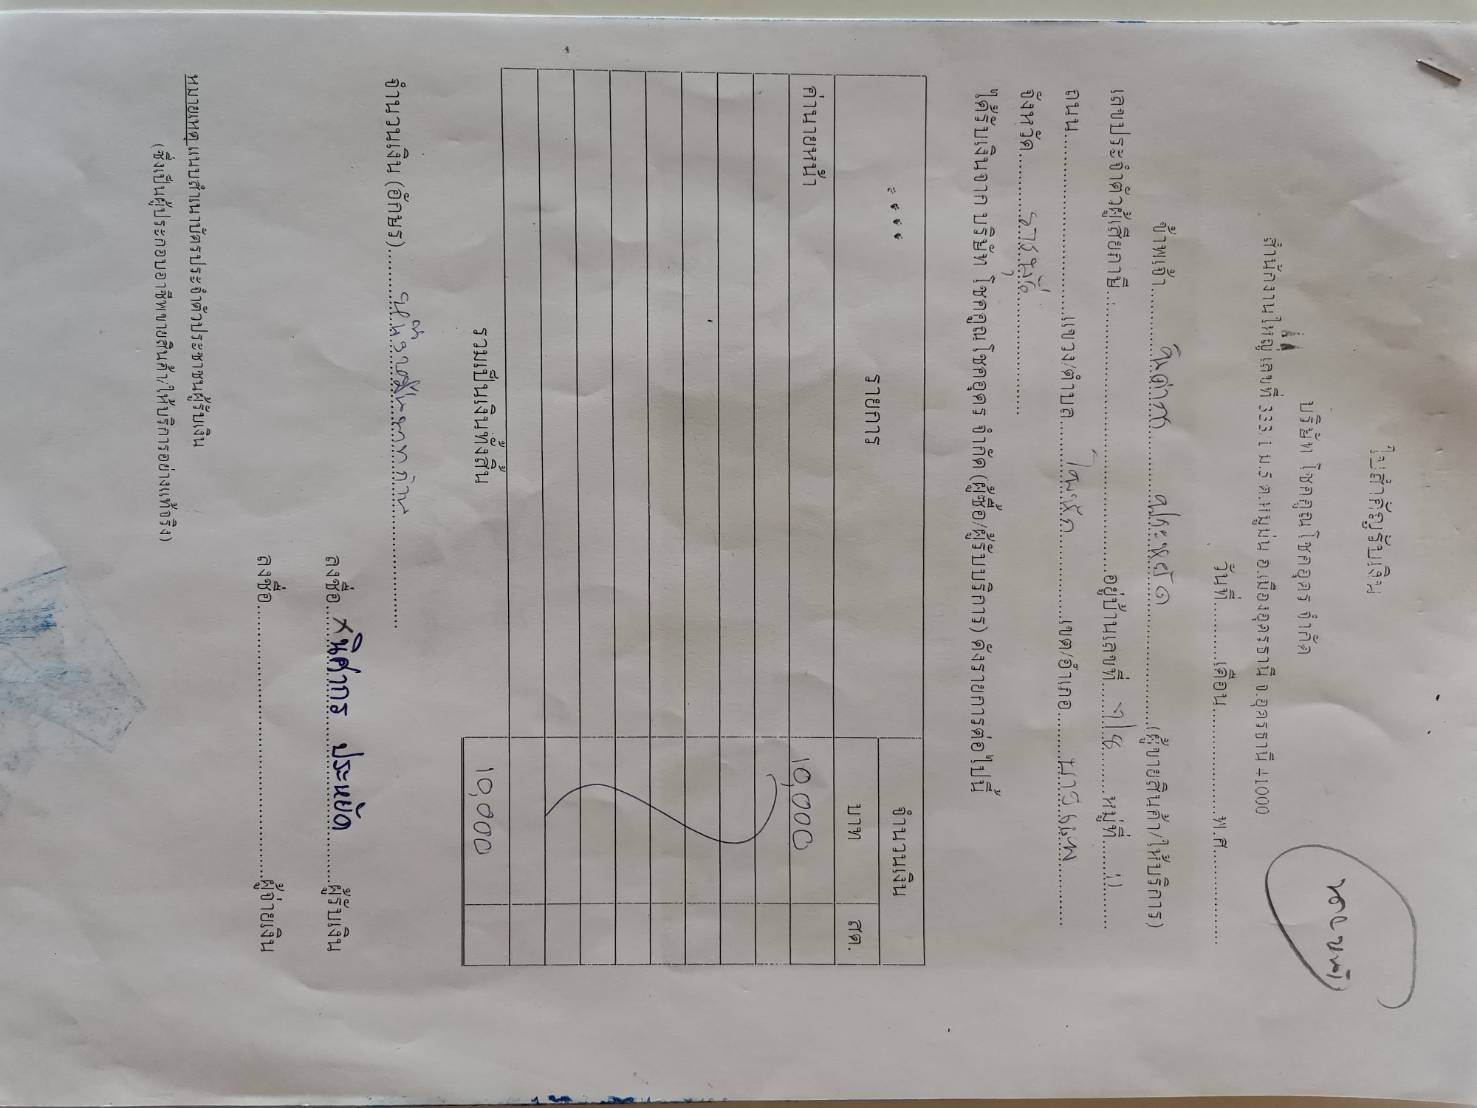 ใบสำคัญรับเงิน
บริษัท โชคคูณโชคอุดร จำกัด
สำนักงานใหญ่ เลขที่ 333/1 ม.5 ต.หมูม่น อ.เมืองอุดรธานี จ.อุดรธานี 41000
วันที่............เดือน....................พ.ศ..................
ข้าพเจ้า............นิศากร............ประหยัด............(ผู้ขายสินค้า/ให้บริการ)
เลขประจำตัวผู้เสียภาษี............อยู่บ้านเลขที่............หมู่ที่............
ถนน............แขวง/ตำบล............เขต/อำเภอ............
จังหวัด............
ได้รับเงินจาก บริษัท โชคคูณโชคอุดร จำกัด (ผู้ซื้อ/ผู้รับบริการ) ดังรายการต่อไปนี้
รายการ จำนวนเงิน
บาท สต.
ค่านายหน้า 10,000
รวมเป็นเงินทั้งสิ้น 10,000
จำนวนเงิน (อักษร)............หนึ่งหมื่นบาทถ้วน............
ลงชื่อ × นิศากร ประหยัด ผู้รับเงิน
ลงชื่อ............ผู้จ่ายเงิน
หมายเหตุ แนบสำเนาบัตรประจำตัวประชาชนผู้รับเงิน
(ซึ่งเป็นผู้ประกอบอาชีพขายสินค้า/ให้บริการอย่างแท้จริง)